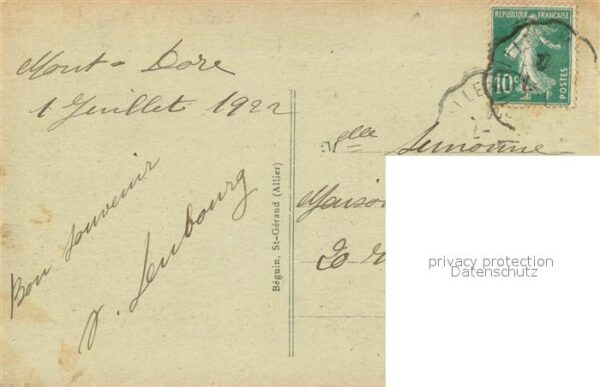 Mont-Dore
1 Juillet 1922
Bon Souvenir
Béguin, St-Gérand (Allier)
REPUBLIQUE FRANÇAISE
10c
POSTES
Mlle
Maison
20
privacy protection
Datenschutz